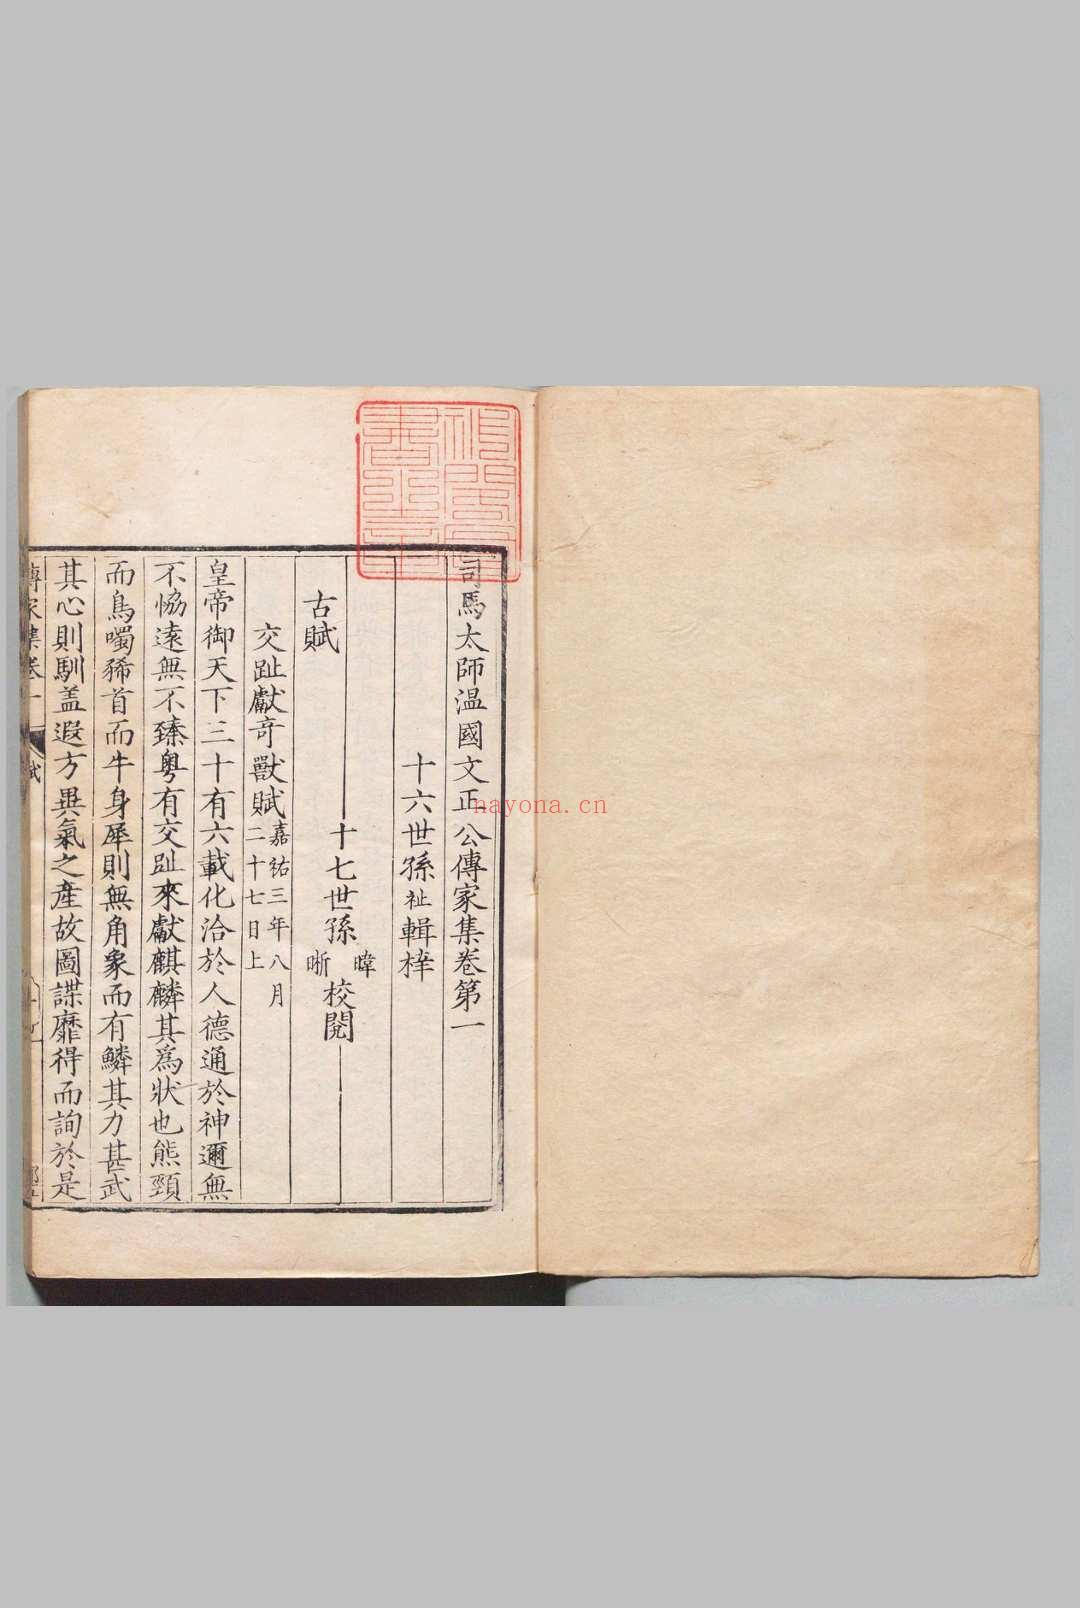 司馬太師温國文正公傳家集卷第一
十六世孫祉輯梓
十七世孫
暐
晣
校閱
古賦
交趾獻竒獸賦
嘉祐三年八月
二十七日上
皇帝御天下三十有六載化洽於人德通於神邇無
不恊遠無不臻粤有交趾來獻麒麟其為狀也熊頸
而鳥噣豨首而牛身犀則無角象而有鱗其力甚武
其心則馴盖遐方異氣之產故圖諜靡得而詢於是
傳家集卷一
賦
nayona.cn